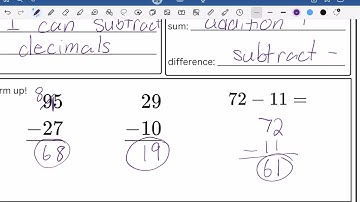 I can subtract
decimals
sum: addition +
difference: subtract -
rm up!
8
95 29 72 − 11 =
−27 −10 72
68 19 −11
61